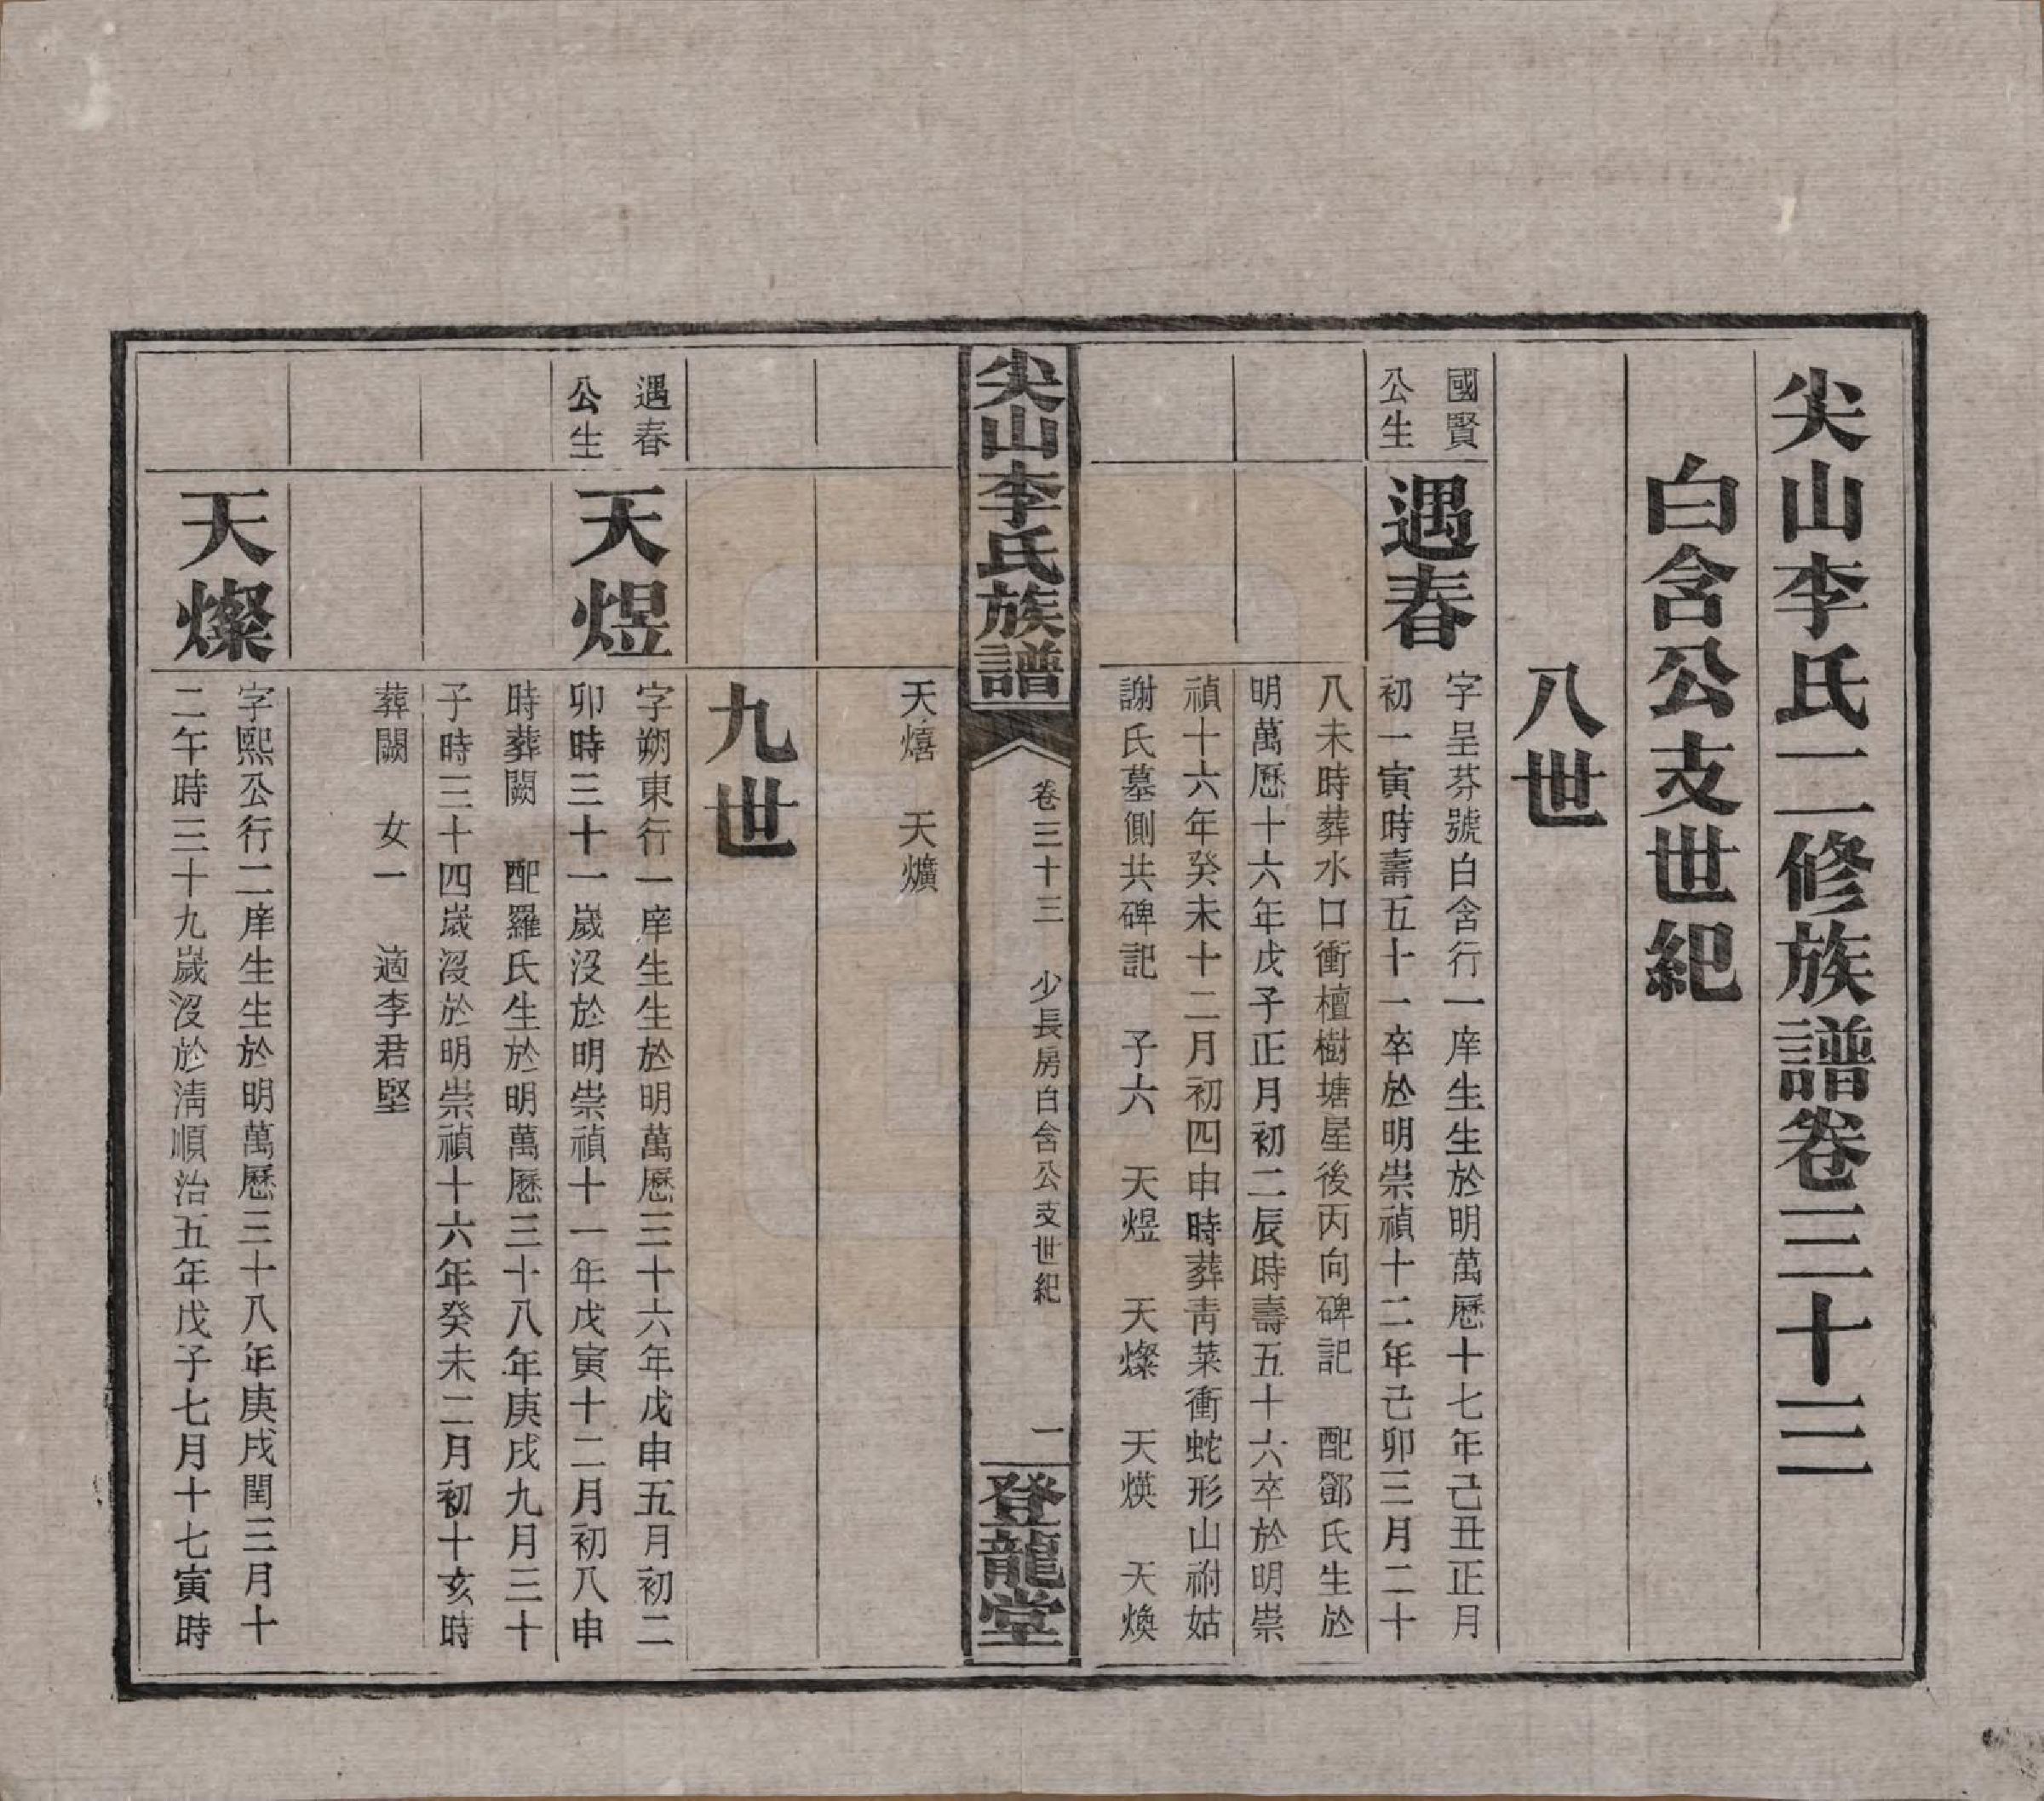 尖山李氏二修族譜卷三十三
白含公支世紀
八世
國賢
公生
遇春
字呈芬號白含行一庠生生於明萬曆十七年己丑正月
初一寅時壽五十一卒於明崇禎十二年己卯三月二十
八未時葬水口衝檀樹塘屋後丙向碑記　配鄧氏生於
明萬曆十六年戊子正月初二辰時壽五十六卒於明崇
禎十六年癸未十二月初四申時葬青菜衝蛇形山祔姑
謝氏墓側共碑記　子六　天煜　天燦　天煐　天煥
尖山李氏族譜
卷三十三　少長房白含公支世紀
一
登龍堂
天熺　天爌
九世
遇春
公生
天煜
字朔東行一庠生生於明萬曆三十六年戊申五月初二
卯時三十一歲沒於明崇禎十一年戊寅十二月初八申
時葬闕　配羅氏生於明萬曆三十八年庚戌九月三十
子時三十四歲沒於明崇禎十六年癸未二月初十亥時
葬闕　女一　適李君堅
天燦
字熙公行二庠生生於明萬曆三十八年庚戌閏三月十
二午時三十九歲沒於清順治五年戊子七月十七寅時